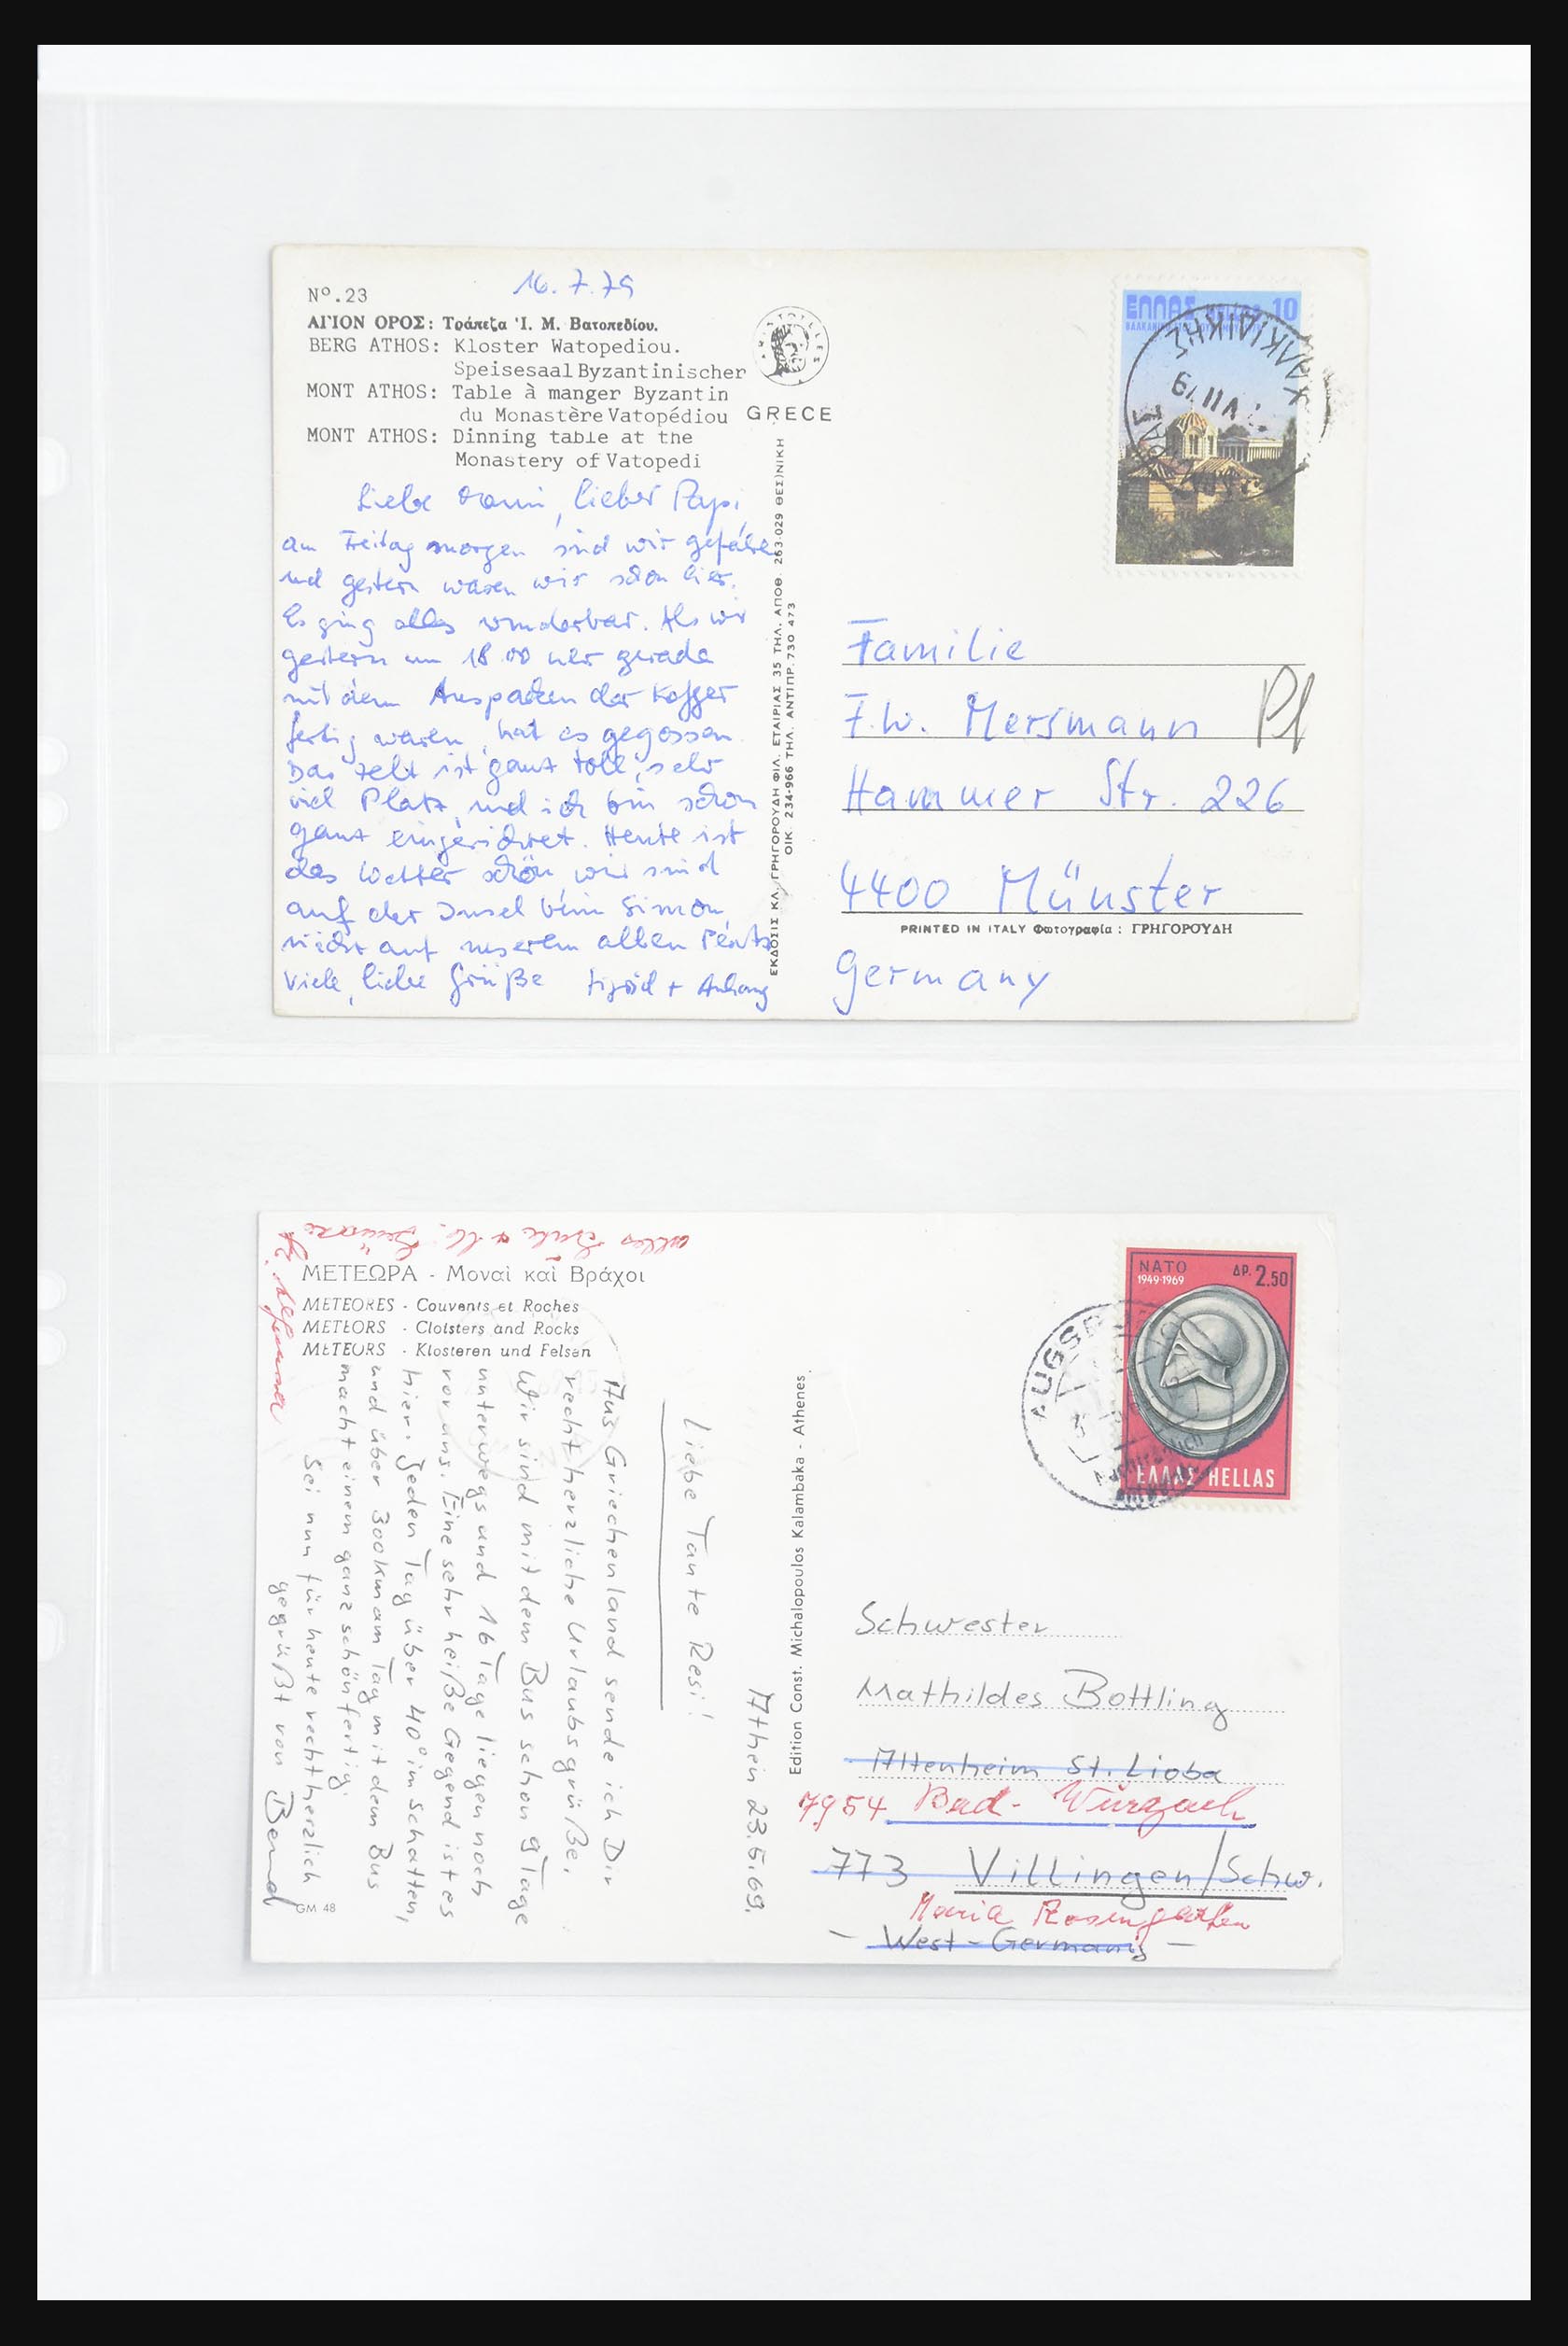 16.7.79
Nº.23
ΑΓΙΟΝ ΟΡΟΣ: Τράπεζα Ἱ. Μ. Βατοπεδίου.
BERG ATHOS: Kloster Watopediou.
Speisesaal Byzantinischer
MONT ATHOS: Table à manger Byzantin
du Monastère Vatopédiou
MONT ATHOS: Dinning table at the
Monastery of Vatopedi
GRECE
ARISTOTELES
Liebe Mami, lieber Papi,
am Freitag morgen sind wir gefahren
und gestern waren wir schon hier.
Es ging alles wunderbar. Als wir
gestern um 18.00 Uhr gerade
mit dem Auspacken der Koffer
fertig waren, hat es gegossen.
Das Zelt ist ganz toll, sehr
viel Platz und ich bin schon
ganz eingerichtet. Heute ist
das Wetter schön, wir sind
auf der Insel beim Simon,
nicht auf unserem alten Platz
Viele, liebe Grüße + Anhang
ΕΚΔΟΣΙΣ ΚΛ. ΓΡΗΓΟΡΟΥΔΗ ΦΙΛ. ΕΤΑΙΡΙΑΣ 35 ΤΗΛ. ΑΠΟΘ. 263.029 ΘΕΣ)ΝΙΚΗ
ΟΙΚ. 234-966 ΤΗΛ. ΑΝΤΙΠΡ. 730 473
ΕΛΛΑΣ HELLAS 10
ΧΑΛΚΙΔΙΚΗΣ
VII 79
Familie
F.W. Mersmann
Pl
Hammer Str. 226
4400 Münster
PRINTED IN ITALY Φωτογραφία : ΓΡΗΓΟΡΟΥΔΗ
Germany
alles Gute
ΜΕΤΕΩΡΑ - Μοναὶ καὶ Βράχοι
METEORES - Couvents et Roches
METEORS - Cloisters and Rocks
METEORS - Klosteren und Felsen
Athen 23.6.69.
Liebe Tante Resi!
Aus Griechenland sende ich Dir
recht herzliche Urlaubsgrüße.
Wir sind mit dem Bus schon 9 Tage
unterwegs und 16 Tage liegen noch
vor uns. Eine sehr heiße Gegend ist es
hier. Jeden Tag über 40° im Schatten,
und über 300 km am Tag mit dem Bus
macht einem ganz schön fertig.
Sei nun für heute recht herzlich
gegrüßt von Bernd
GM 48
Edition Const. Michalopoulos Kalambaka - Athenes
NATO
1949-1969
ΔΡ. 2.50
ΕΛΛΑΣ HELLAS
AUGSBURG
Schwester
Mathildes Bottling
Altenheim St. Lioba
7954 Bad-Wurzach
773 Villingen/Schw.
Maria Rosengarten
- West-Germany -